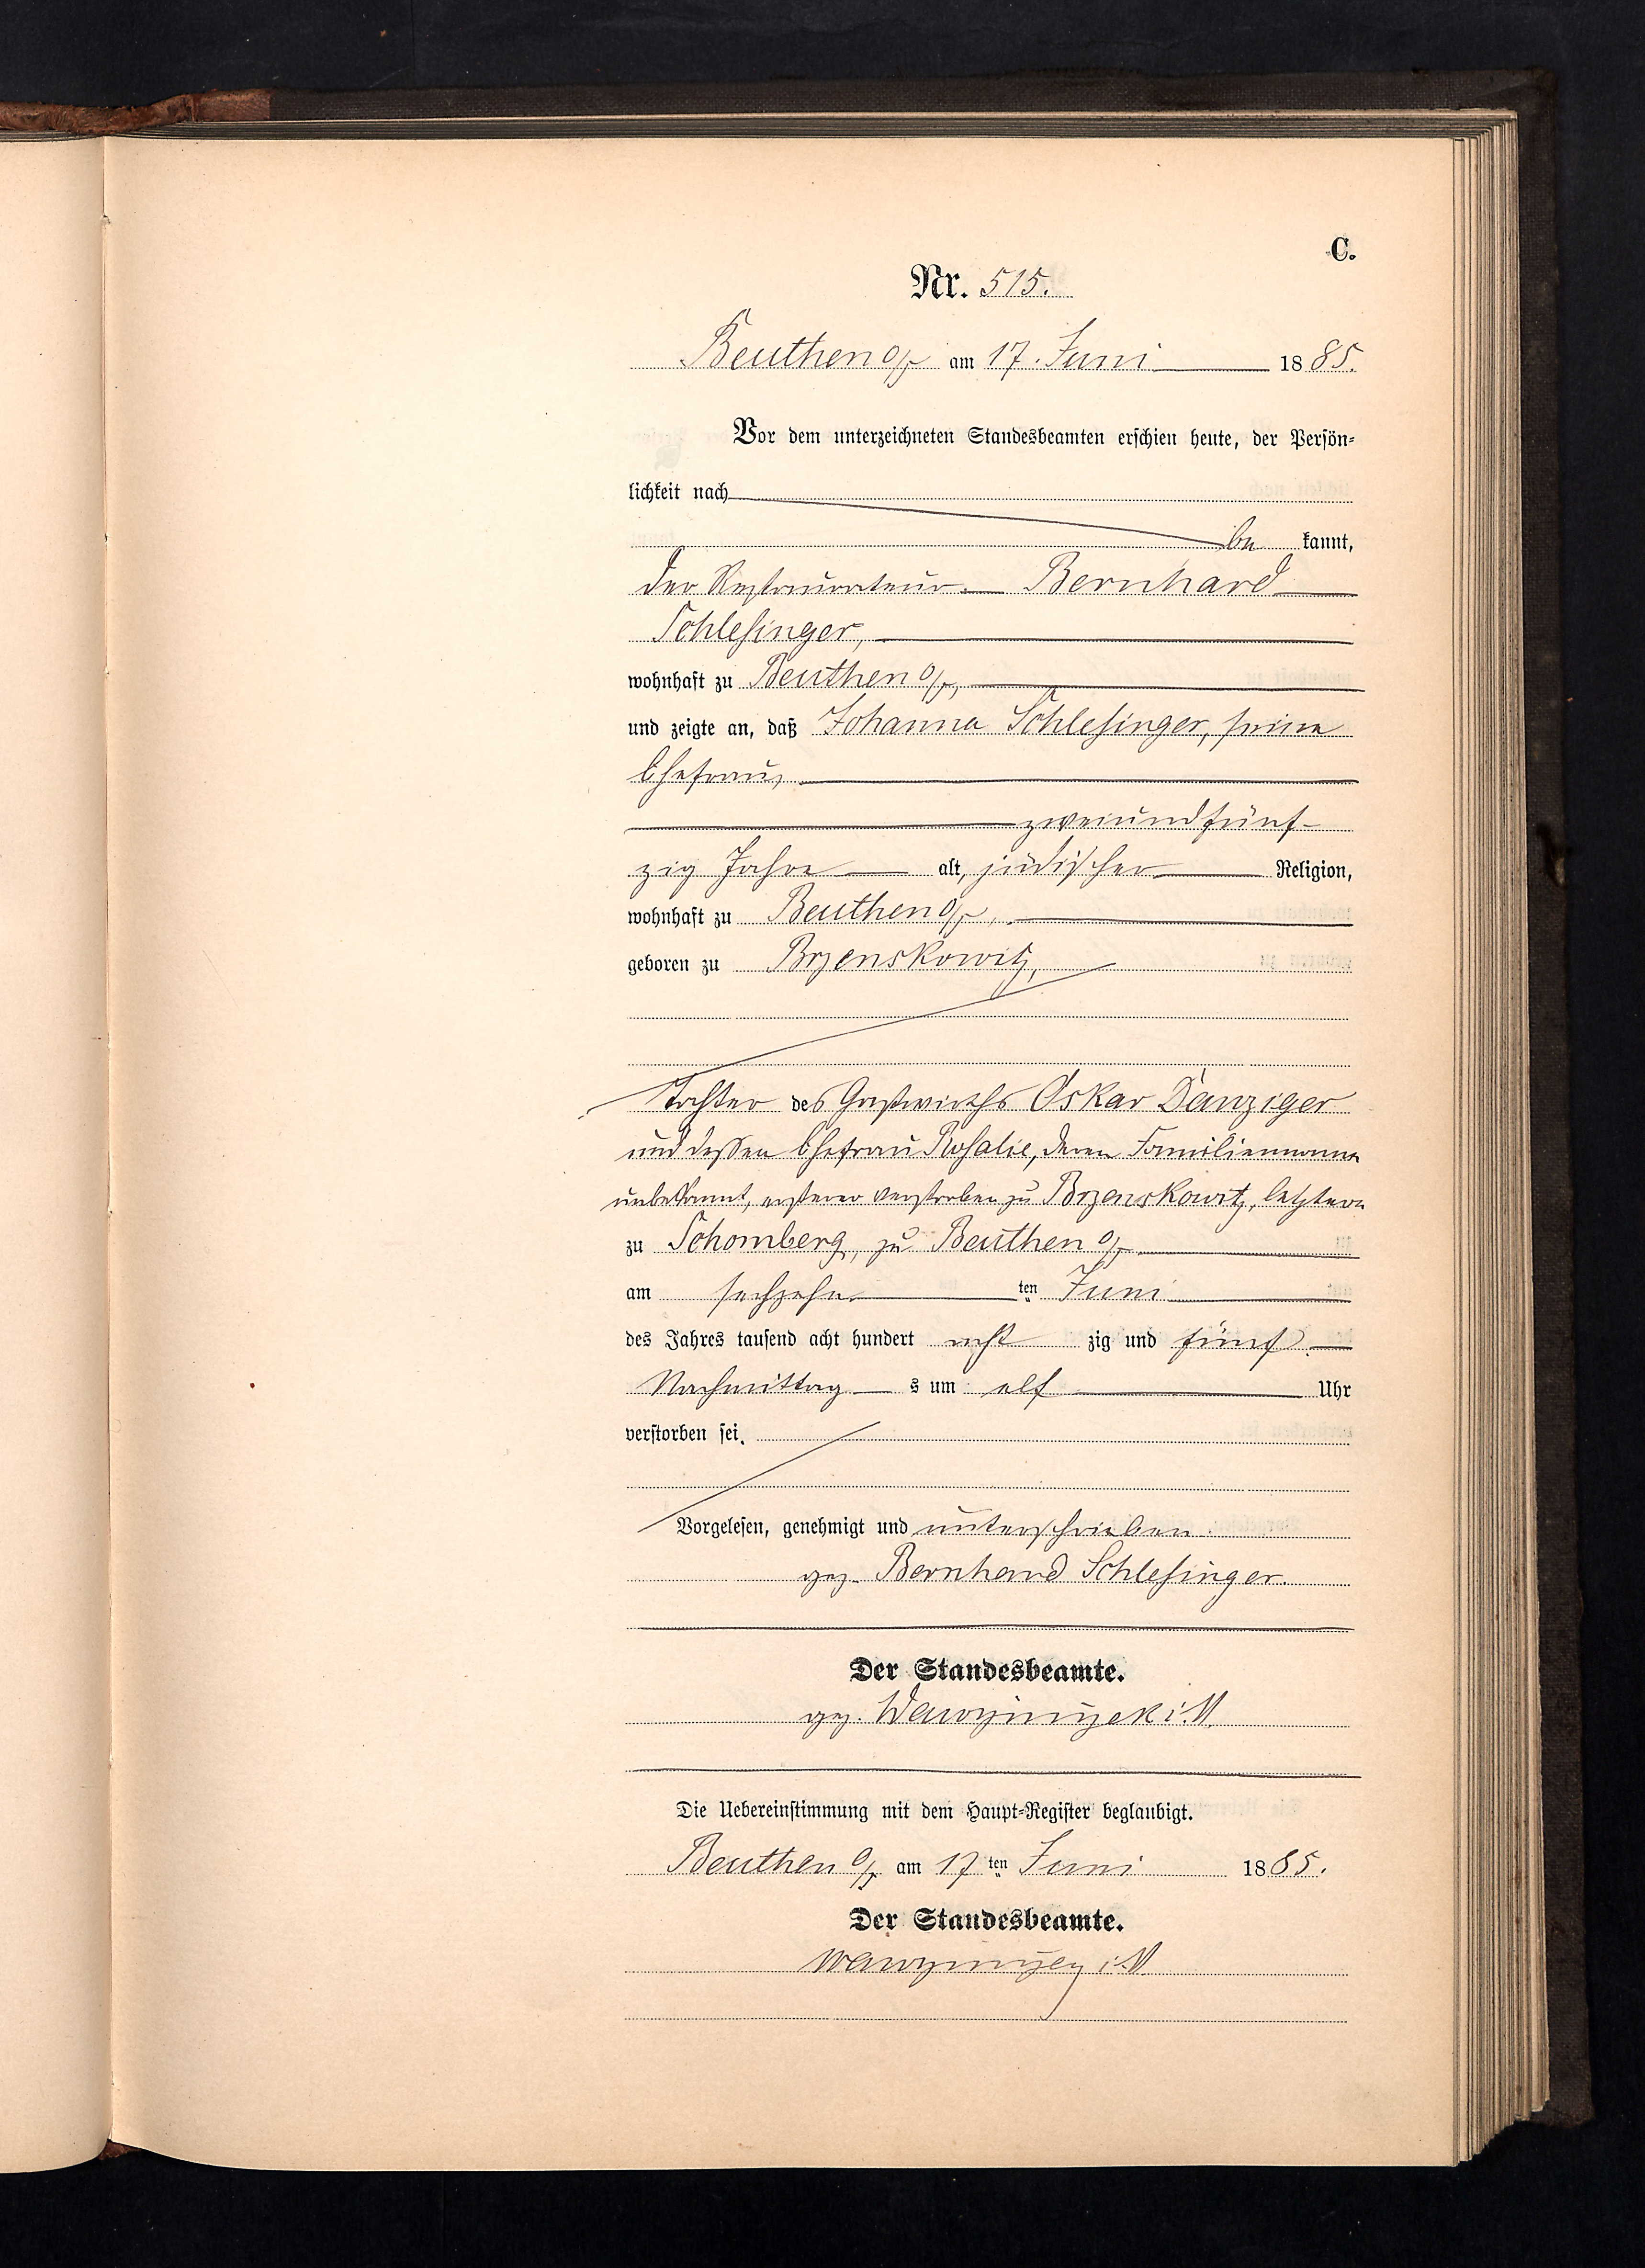 C.
Nr. 515.
Beuthen O/S am 17. Juni 1885.
Vor dem unterzeichneten Standesbeamten erschien heute, der Persön-
lichkeit nach
be kannt,
der Restaurateur Bernhard
Schlesinger,
wohnhaft zu Beuthen O/S,
und zeigte an, daß Johanna Schlesinger, seine
Ehefrau,
zweiundfünf-
zig Jahre alt, jüdischer Religion,
wohnhaft zu Beuthen O/S,
geboren zu Brzenskowitz,
Tochter des Gastwirths Oskar Danziger
und dessen Ehefrau Rosalie, deren Familienname
unbekannt, ersterer verstorben zu Brzenskowitz, letztere
zu Schomberg, zu Beuthen O/S
am sechzehn ten Juni
des Jahres tausend acht hundert acht zig und fünf
Nachmittag s um elf Uhr
verstorben sei.
Vorgelesen, genehmigt und unterschrieben.
gez. Bernhard Schlesinger.
Der Standesbeamte.
gez. i. V.
Die Uebereinstimmung mit dem Haupt-Register beglaubigt.
Beuthen O/S am 17 ten Juni 1885.
Der Standesbeamte.
i. V.